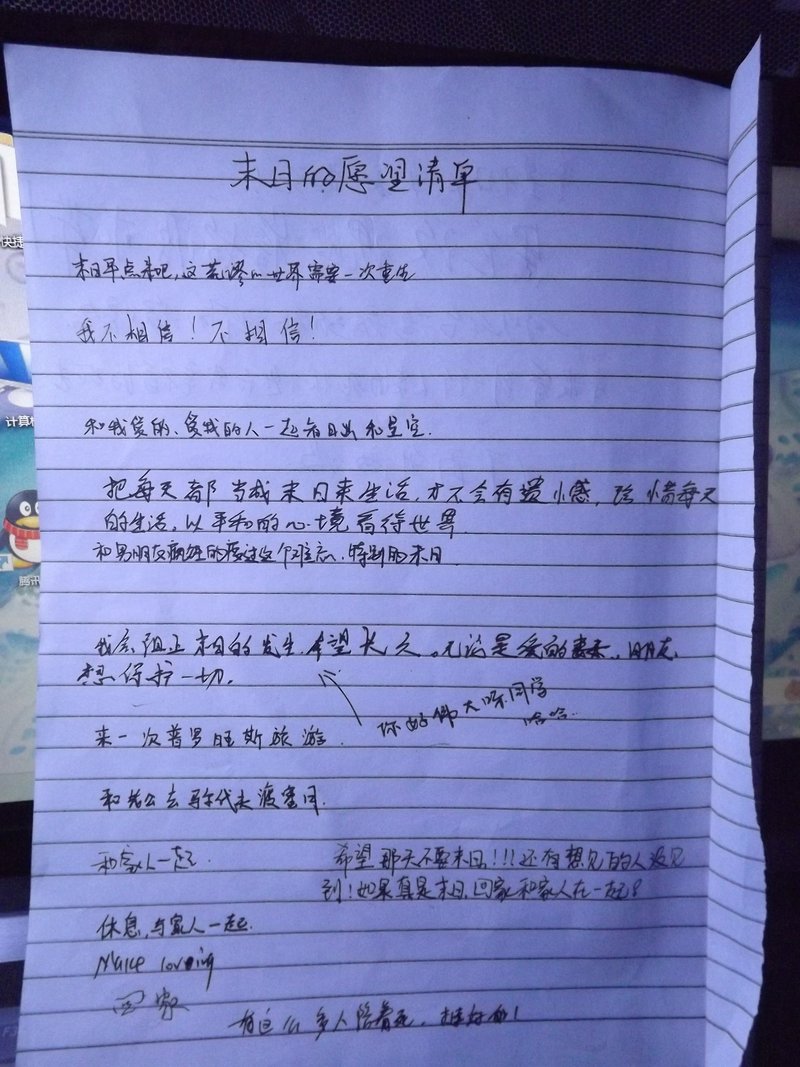 末日的愿望清单
快捷
末日早点来吧,这荒谬的世界需要一次重生
我不相信!不相信!
计算机
和我爱的、爱我的人一起看日出和星空.
把每天都当成末日来生活,才不会有遗憾,珍惜每天
的生活,以平和的心境看待世界
和男朋友疯狂的度过这个难忘、特别的末日
腾讯
我会阻止末日的发生,希望长久。无论是爱的,朋友,
想保护一切。
你好伟大啊同学
哈哈..
来一次普罗旺斯旅游.
和老公去马尔代夫渡蜜月.
和家人一起.
希望那天不要末日!!!还有想见的人没见
到!如果真是末日,回家和家人在一起!
休息,与家人一起.
Make loveing
回家
有这么多人陪着死,挺好的!